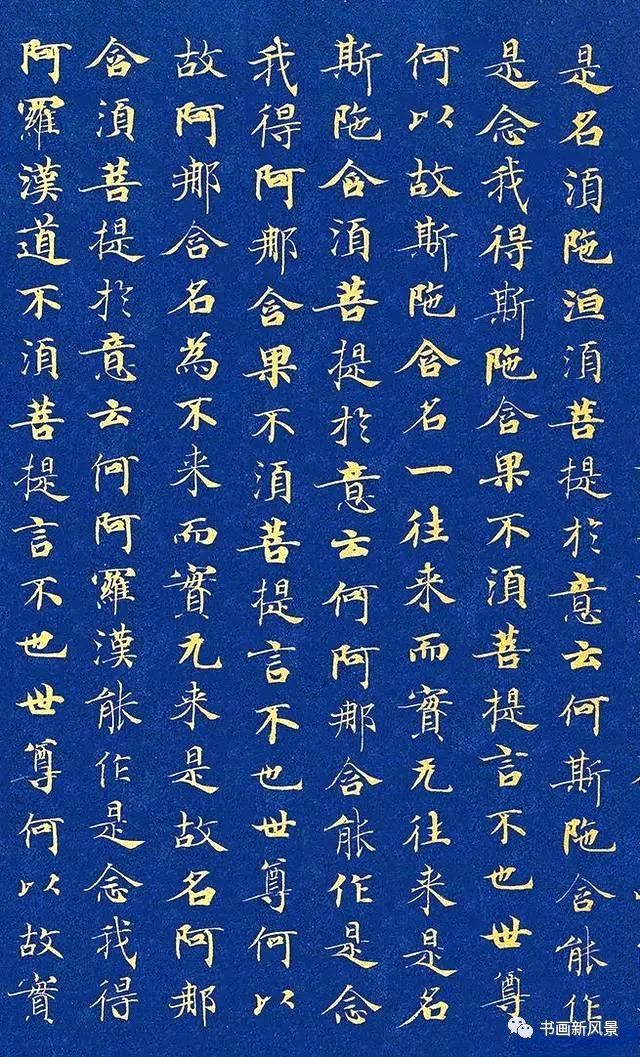 是名湏陁洹湏菩提於意云何斯陁含能作
是念我得斯陁含果不湏菩提言不也世尊
何以故斯陁含名一往来而實无往来是名
斯陁含湏菩提於意云何阿那含能作是念
我得阿那含果不湏菩提言不也世尊何以
故阿那含名為不来而實无来是故名阿那
含湏菩提於意云何阿羅漢能作是念我得
阿羅漢道不湏菩提言不也世尊何以故實
书画新风景